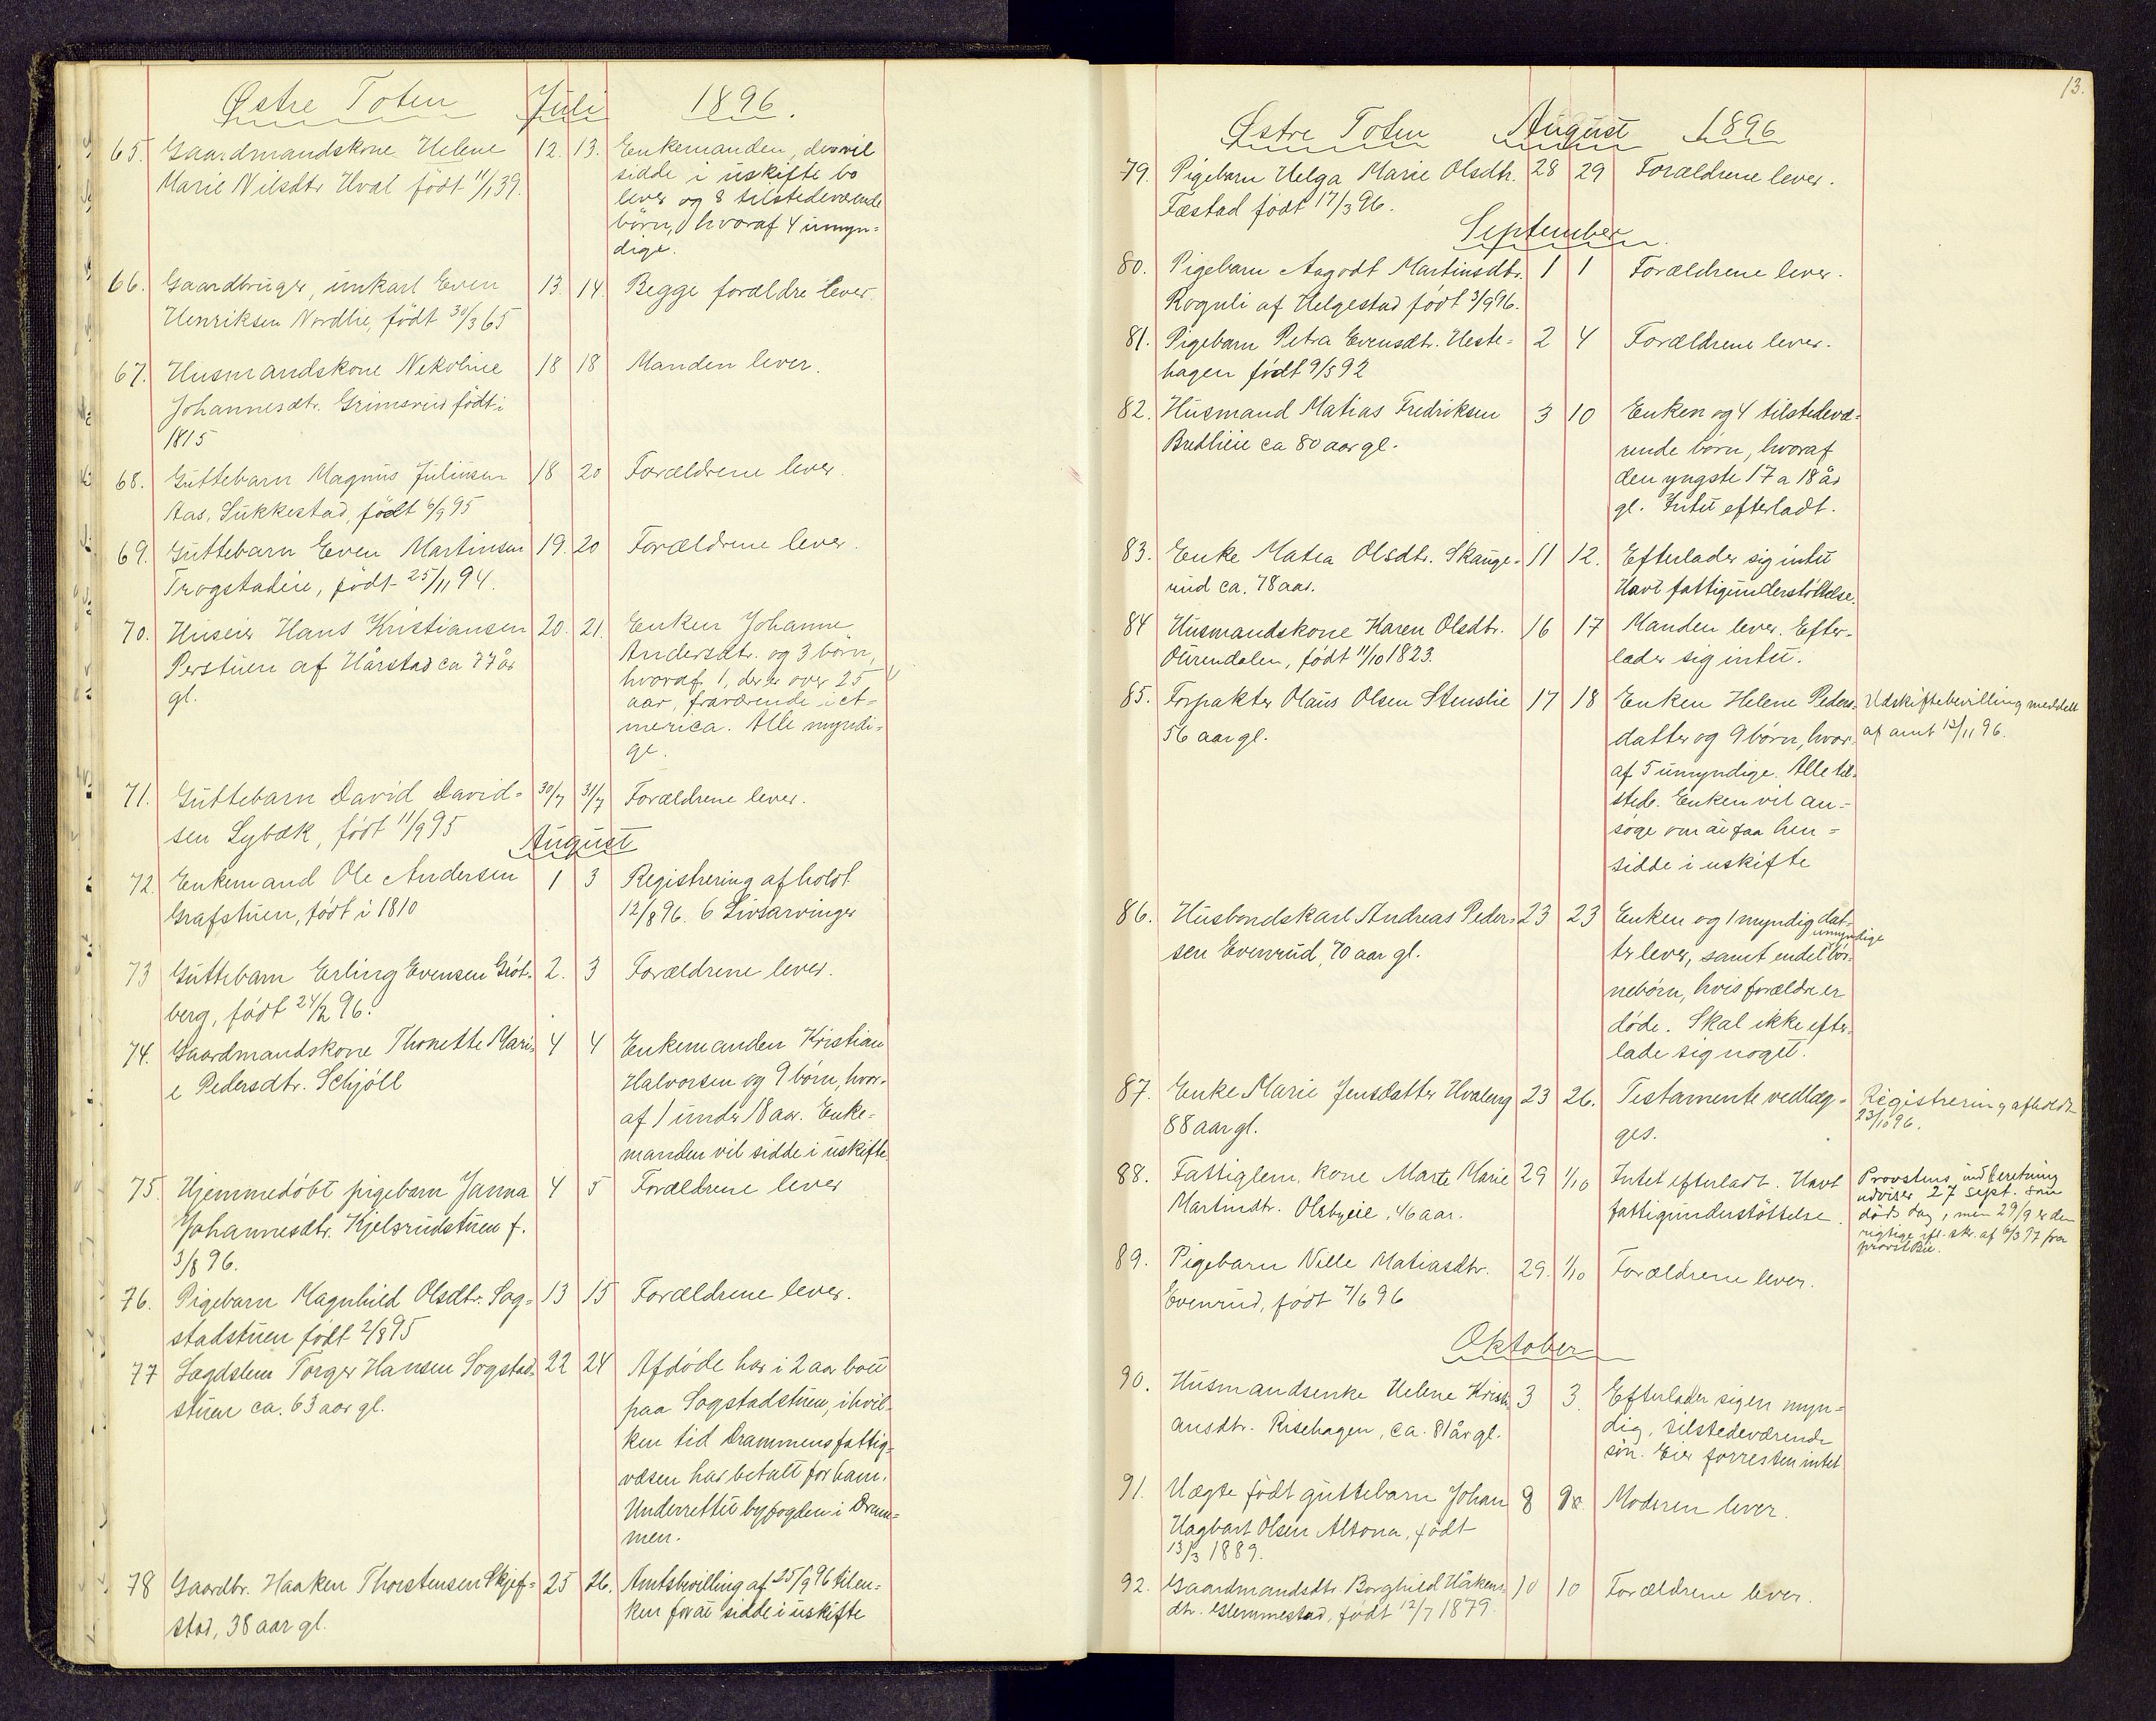 Østre Toten Juli 1896.
65. Gaardmandskone Helene 12. 13. Enkemanden, der vil
Marie Nilsdtr Hval født 11/1 39. sidde i uskifte bo
lever og 8 tilstedeværende
børn, hvoraf 4 umyn=
dige.
66. Gaardbruger, unkarl Even 13. 14. Begge forældre lever.
Henriksen Nordlie, født 30/3 65
67. Husmandskone Nekoline 18 18 Manden lever.
Johannesdtr. Grimsrud født i
1815
68. Guttebarn Magnus Juliussen 18 20 Forældrene lever.
Aas, Sukkestad, født 6/9 95
69. Guttebarn Even Martinsen 19. 20 Forældrene lever.
Trogstadeie, født 25/11 94.
70. Huseier Hans Kristiansen 20. 21. Enken Johanne
Perstuen af Hårstad ca 77 år Andersdtr. og 3 børn,
gl. hvoraf 1, der er over 25
aar, fraværende i A=
merica. Alle myndi=
ge.
71. Guttebarn David David= 30/7 31/7 Forældrene lever.
sen Lybæk, født 11/9 95
August
72. Enkemand Ole Andersen 1 3 Registrering afholdt
Grafstuen, født i 1810 12/8 96. 6 Livsarvinger
73 Guttebarn Erling Evensen Grøt- 2. 3 Forældrene lever.
berg, født 24/2 96.
74. Gaardmandskone Thonette Mari= 4 4 Enkemanden Kristian
e Pedersdtr. Schjøll Halvorsen og 9 børn, hvor-
af 1 under 18 aar. Enke=
manden vil sidde i uskifte.
75. Hjemmedøbt pigebarn Janna 4 5 Forældrene lever
Johannesdtr. Kjelsrudstuen f.
3/8 96.
76. Pigebarn Magnhild Olsdtr. Sog= 13 15 Forældrene lever.
stadstuen født 2/8 95
77 Lægdslem Torger Hansen Sogstad- 22 24 Afdøde har i 2 aar boet
stuen ca. 63 aar gl. paa Sogstadstuen, i hvil-
ken tid Drammens fattig=
væsen har betalt for ham.
Underrettet byfogden i Dram=
men.
78 Gaardbr. Haaken Thorstensen Skjef= 25 26. Amtsbevilling af 25/9 96 til en-
stad, 38 aar gl. ken for at sidde i uskifte
13.
Østre Toten August 1896
79. Pigebarn Helga Marie Olsdtr. 28 29 Forældrene lever.
Fæstad født 17/3 96.
September
80. Pigebarn Aagodt Martinsdtr. 1 1 Forældrene lever.
Roguli af Helgestad født 3/9 96.
81. Pigebarn Petra Evensdtr. Heste= 2 4 Forældrene lever.
hagen født 9/5 92
82. Husmand Matias Fredriksen 3 10 Enken og 4 tilstedevæ=
Bredlieie ca 80 aar gl. rende børn, hvoraf
den yngste 17 a 18 år
gl. Intet efterladt.
83. Enke Matea Olsdtr. Skauge- 11 12. Efterlader sig intet
rud ca. 78 aar. Havt fattigunderstøttelse.
84 Husmandskone Karen Olsdtr. 16 17 Manden lever. Efter-
Ourendalen, født 11/10 1823. lader sig intet.
85. Forpakter Olaus Olsen Stenslie 17 18 Enken Helene Peders- Udskiftebevilling meddelt
56 aar gl. datter og 9 børn, hvor- af amt 12/11 96.
af 5 umyndige. Alle til-
stede. Enken vil an=
søge om at faa hen=
sidde i uskifte
86. Husbondskarl Andreas Peder= 23 23 Enken og 1 myndig dat-
sen Evenrud, 70 aar gl. ter lever, samt endel umyndige bør-
nebørn, hvis forældre er
døde. Skal ikke efter-
lade sig noget.
87. Enke Marie Jensdatter Hvaleng 23 26. Testamente vedlæg= Registrering afholdt
88 aar gl. ges. 23/10 96.
88. Fattiglem, kone Marte Marie 29 1/10 Intet efterladt. Havt Provstens indberetning
Martindtr. Olsbyeie, 46 aar. fattigunderstøttelse. udviser 27 sept. som
døds dag, men 29/9 er den
rigtige ifl. skr. af 6/3 97 fra
provsten.
89. Pigebarn Nille Matiasdtr. 29. 1/10 Forældrene lever.
Evenrud, født 7/6 96
Oktober
90. Husmandsenke Helene Kristi- 3 3. Efterlader sig en myn=
ansdtr. Risehagen, ca. 81 år gl. dig, tilstedeværende
søn. Eier forresten intet
91. Uægte født guttebarn Johan 8 9. Moderen lever.
Hagbart Olsen Altona, født
13/3 1889.
92. Gaardmandsdtr. Borghild Håkens- 10 10 Forældrene lever.
dtr. Glemmestad, født 12/7 1879.